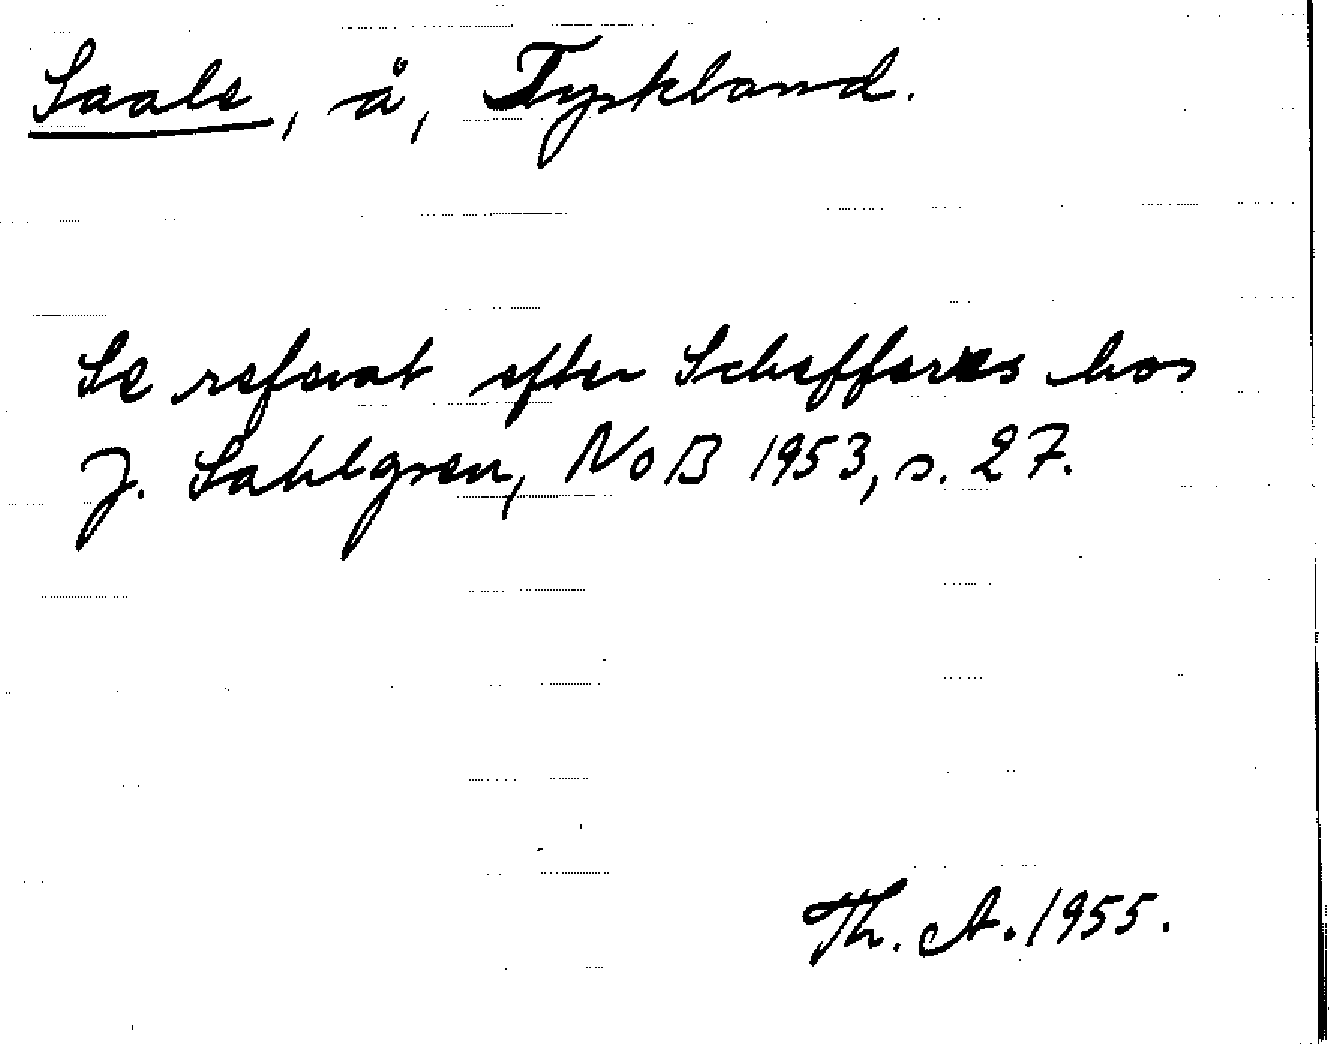 Saale, å, Tyskland.
Se referat efter Schefferus hos
J. Sahlgren, NoB 1953, s. 27.
Th. A. 1955.